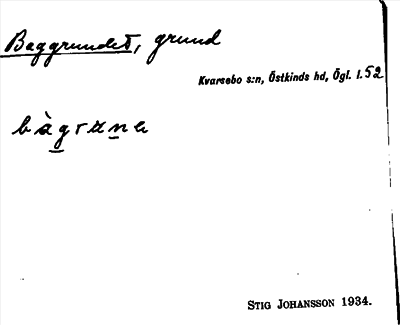 Baggrundet, grund
Kvarsebo s:n, Östkinds hd, Ögl. l. 52
bàgrune
STIG JOHANSSON 1934.